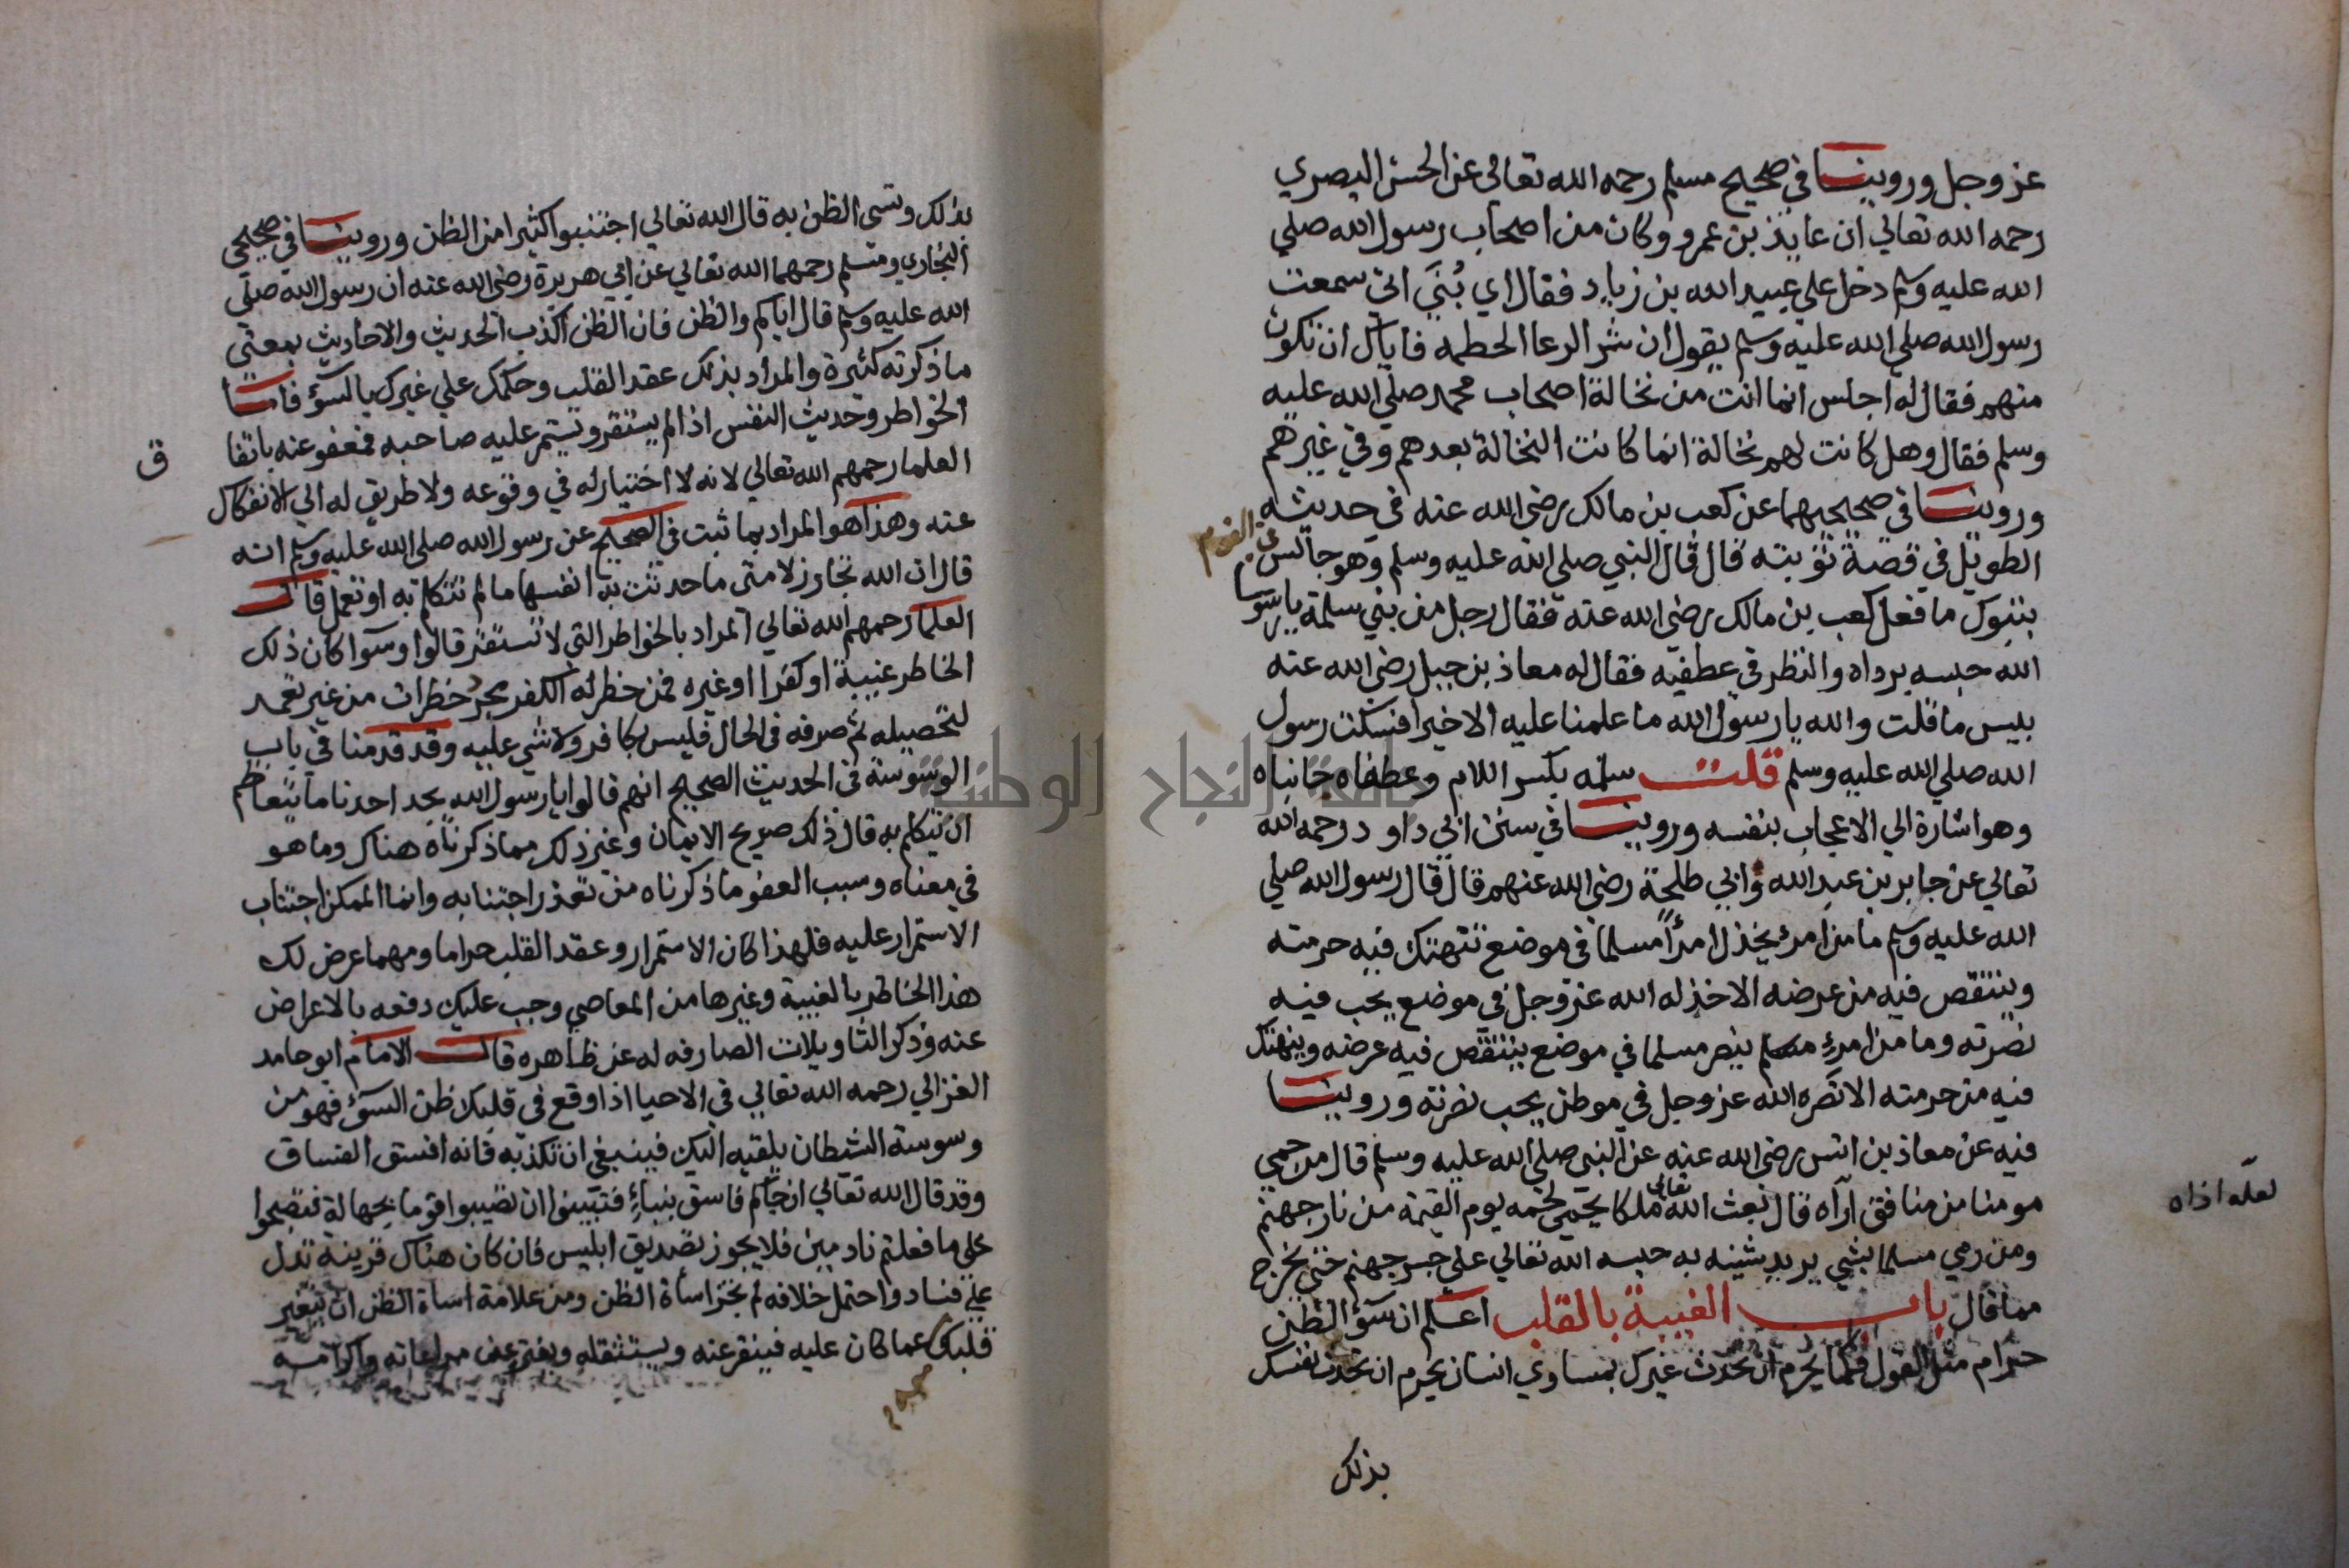 عز وجل وروينا في صحيح مسلم رحمه الله تعالى عن الحسن البصري
رحمه الله تعالي ان عايذ بن عمرو وكان من اصحاب رسول الله صلي
الله عليه وسلم دخل علي عبيد الله بن زياد فقال اي بُنَيَّ اني سمعت
رسول الله صلي الله عليه وسلم يقول ان شر الرعا الحطمة فاياك ان تكون
منهم فقال له اجلس انما انت من نخالة اصحاب محمد صلي الله عليه
وسلم فقال وهل كانت لهم نخالة انما كانت النخالة بعدهم وفي غيرهم
وروينا في صحيحيهما عن كعب بن مالك رضي الله عنه في حديثه
الطويل في قصة توبته قال قال النبي صلي الله عليه وسلم وهو جالس في القوم
بتبوك ما فعل كعب بن مالك رضي الله عنه فقال رجل من بني سلمة يا رسول
الله حبسه برداه والنظر في عطفيه فقال له معاذ بن جبل رضي الله عنه
بيس ما قلت والله يا رسول الله ما علمنا عليه الا خيرا فسكت رسول
الله صلي الله عليه وسلم قلت سلمه بكسر اللام وعطفاه جانباه
وهو اشارة الي الاعجاب بنفسه وروينا في سنن ابي داود رحمه الله
تعالي عن جابر بن عبد الله وابي طلحة رضي الله عنهم قال قال رسول الله صلي
الله عليه وسلم ما من امرء يخذل امرأ مسلما في موضع تنتهك فيه حرمته
وينتقص فيه من عرضه الا خذله الله عز وجل في موضع يحب فيه
نصرته وما من امرء مسلم ينصر مسلما في موضع ينتقص فيه عرضه وينهتك
فيه من حرمته الا نصره الله عز وجل في موطن يحب نصرته وروينا
فيه عن معاذ بن انس رضي الله عنه عن النبي صلي الله عليه وسلم قال من حمي
مومنا من منافق آراه قال بعث الله تعالى ملكا يحمي لحمه يوم القيمة من نار جهنم
لعله اذاه
ومن رمي مسلما بشي يريد شينه به حبسه الله تعالي علي جسر جهنم حتي يخرج
مما قال باب الغيبة بالقلب اعلم ان سؤ الظن
حرام مثل القول فكما يحرم ان تحدث غيرك بمساوي انسان يحرم ان تحدث نفسك
بذلك
بذلك وتسي الظن به قال الله تعالي اجتنبوا كثيرا من الظن وروينا في صحيحي
البخاري ومسلم رحمهما الله تعالي عن ابي هريرة رضي الله عنه ان رسول الله صلي
الله عليه وسلم قال اياكم والظن فان الظن اكذب الحديث والاحاديث بمعني
ما ذكرته كثيرة والمراد بذلك عقد القلب وحكمك علي غيرك بالسؤ فاما
الخواطر وحديث النفس اذا لم يستقر ويستمر عليه صاحبه فمعفو عنه باتفا
ق
العلما رحمهم الله تعالي لانه لا اختيار له في وقوعه ولا طريق له الي الانفكاك
عنه وهذا هو المراد بما ثبت في الصحيح عن رسول الله صلي الله عليه وسلم انه
قال ان الله تجاوز لامتي ما حدثت به انفسها ما لم تتكلم به او تعمل قالت
العلما رحمهم الله تعالي المراد بالخواطر التي لا تستقر قالوا وسوا كان ذلك
الخاطر غيبة او كفرا او غيره فمن خطر له الكفر مجرد خطرات من غير تعمد
لتحصيله ثم صرفه في الحال فليس بكافر ولا شي عليه وقد قدمنا في باب
الوسوسة في الحديث الصحيح انهم قالوا يا رسول الله يجد احدنا ما يتعاظم
ان يتكلم به قال ذلك صريح الايمان وغير ذلك مما ذكرناه هناك وما هو
في معناه وسبب العفو ما ذكرناه من تعذر اجتنابه وانما الممكن اجتناب
الاستمرار عليه فلهذا كان الاستمرار وعقد القلب حراما ومهما عرض لك
هذا الخاطر بالغيبة وغيرها من المعاصي وجب عليك دفعه بالاعراض
عنه وذكر التاويلات الصارفه له عن ظاهره قال الامام ابو حامد
الغزالي رحمه الله تعالي في الاحيا اذا وقع في قلبك ظن السؤ فهو من
وسوسة الشيطان يلقيه اليك فينبغي ان تكذبه فانه افسق الفساق
وقد قال الله تعالي ان جآكم فاسق بنباءٍ فتبينوا ان تصيبوا قوما بجهالة فتصبحوا
علي ما فعلتم نادمين فلا يجوز تصديق ابليس فان كان هناك قرينة تدل
علي فساد واحتمل خلافه لم يجز اساة الظن ومن علامة اساة الظن ان يتغير
قلبك عما كان عليه فينفر عنه ويستثقله ويفتر عن مراعاته واكرامه
جامعة النجاح الوطنية